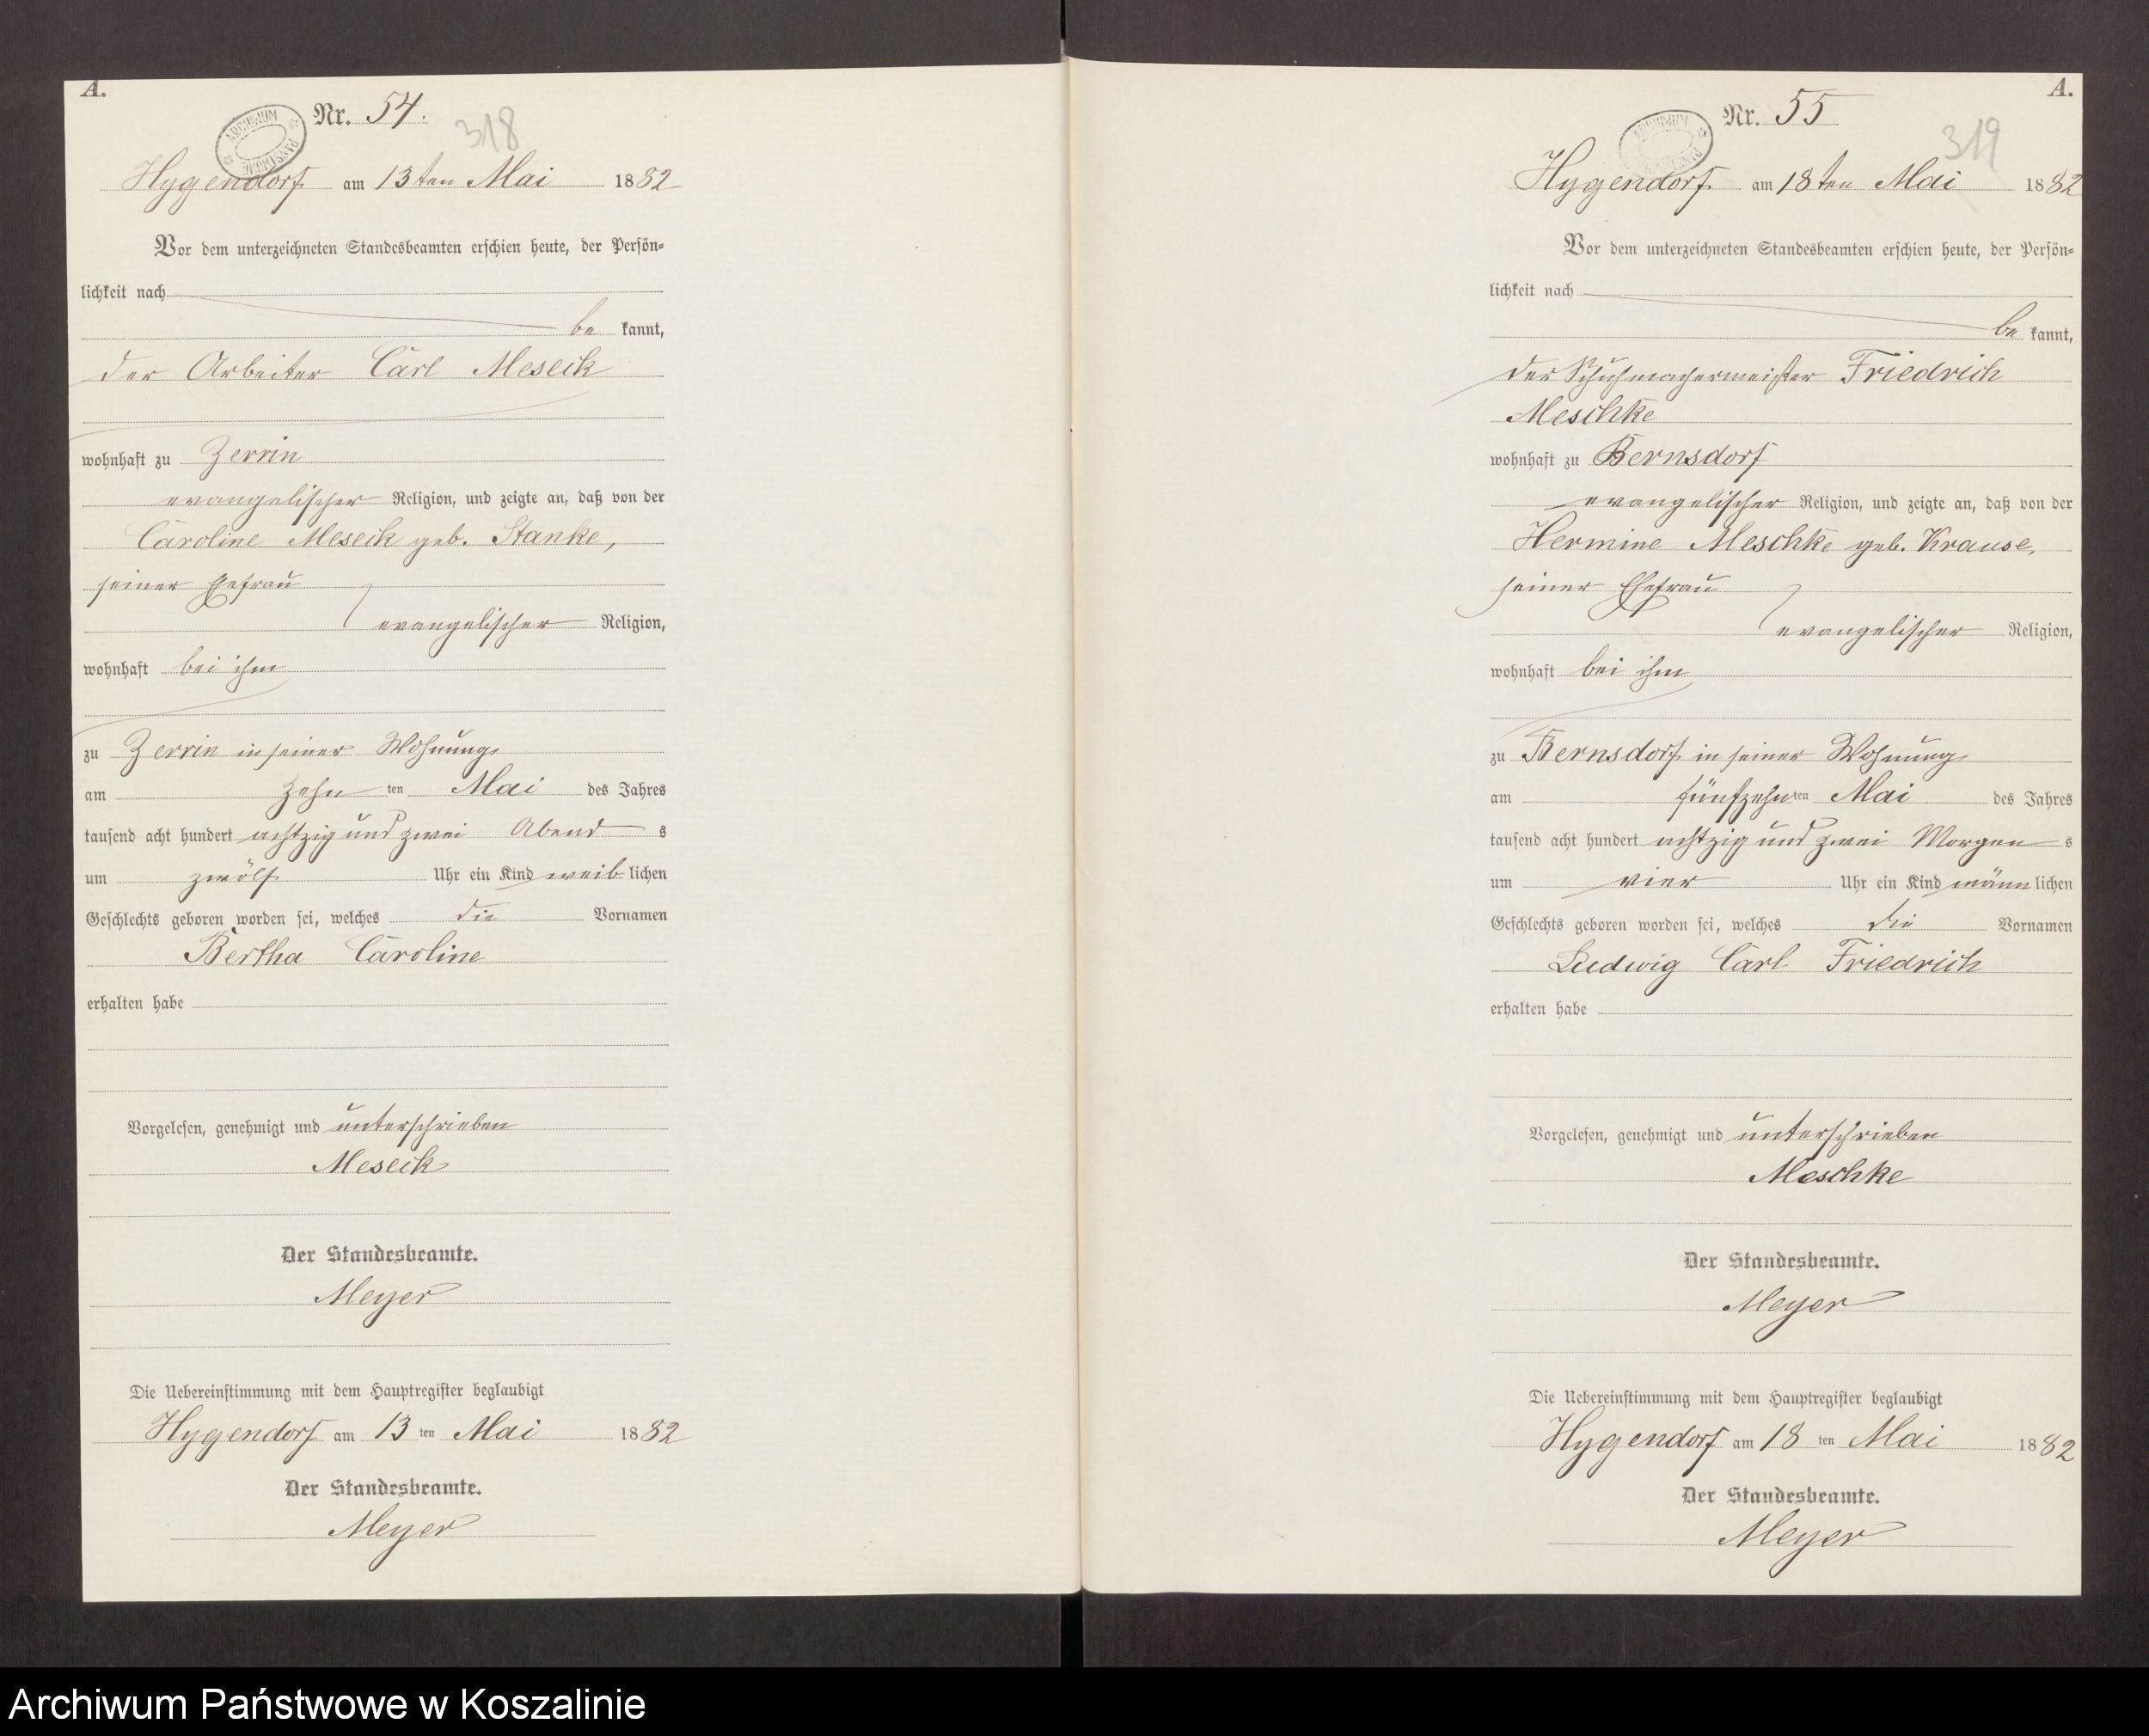 A.
Nr. 54.
318
ARCHIWUM PAŃSTWOWE
Hygendorf am 13ten Mai 1882
Vor dem unterzeichneten Standesbeamten erschien heute, der Persön-
lichkeit nach
be kannt,
der Arbeiter Carl Meseck
wohnhaft zu Zerrin
evangelischer Religion, und zeigte an, daß von der
Caroline Meseck geb. Stanke,
seiner Ehefrau
evangelischer Religion,
wohnhaft bei ihm
zu Zerrin in seiner Wohnung
am zehn ten Mai des Jahres
tausend acht hundert achtzig und zwei Abend s
um zwölf Uhr ein Kind weib lichen
Geschlechts geboren worden sei, welches die Vornamen
Bertha Caroline
erhalten habe
Vorgelesen, genehmigt und unterschrieben
Meseck
Der Standesbeamte.
Meyer
Die Uebereinstimmung mit dem Hauptregister beglaubigt
Hygendorf am 13 ten Mai 1882
Der Standesbeamte.
Meyer
A.
Nr. 55
319
Hygendorf am 18ten Mai 1882
Vor dem unterzeichneten Standesbeamten erschien heute, der Persön-
lichkeit nach
be kannt,
der Schuhmachermeister Friedrich
Meschke
wohnhaft zu Bernsdorf
evangelischer Religion, und zeigte an, daß von der
Hermine Meschke geb. Krause,
seiner Ehefrau
evangelischer Religion,
wohnhaft bei ihm
zu Bernsdorf in seiner Wohnung
am fünfzehn ten Mai des Jahres
tausend acht hundert achtzig und zwei Morgen s
um vier Uhr ein Kind männ lichen
Geschlechts geboren worden sei, welches die Vornamen
Ludwig Carl Friedrich
erhalten habe
Vorgelesen, genehmigt und unterschrieben
Meschke
Der Standesbeamte.
Meyer
Die Uebereinstimmung mit dem Hauptregister beglaubigt
Hygendorf am 18 ten Mai 1882
Der Standesbeamte.
Meyer
Archiwum Państwowe w Koszalinie